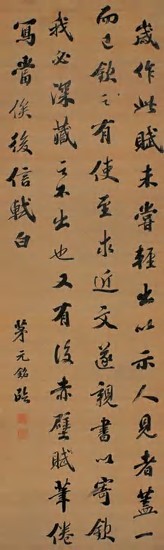 歲作此賦未嘗輕出以示人見者蓋一
而已欽之有使至求近文遂親書以寄欽
我必深藏之不出也又有後赤壁賦筆倦
寫當俟後信軾白
茅元銘臨